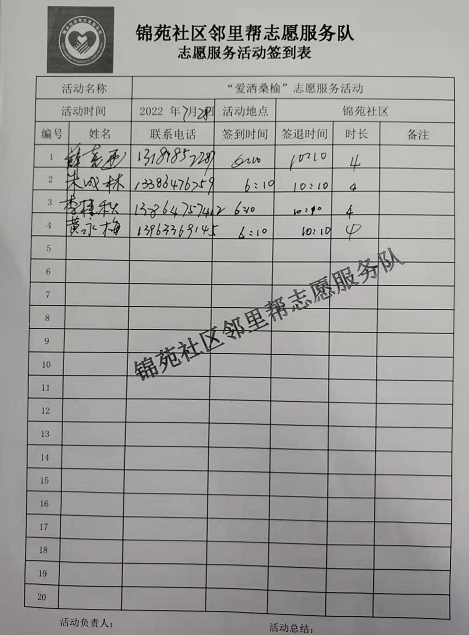 锦苑社区邻里帮志愿服务队
志愿服务活动签到表
活动名称 “爱洒桑榆”志愿服务活动
活动时间 2022 年7月28日 活动地点 锦苑社区
编号 姓名 联系电话 签到时间 签退时间 时长 备注
1 6:10 10:10 4
2 朱成林 13386476759 6:10 10:10 4
3 李桂秋 6:10 10:10 4
4 黄永梅 13963369145 6:10 10:10 4
5
6
7
8
9
10
11
12
13
14
15
16
17
18
19
20
锦苑社区邻里帮志愿服务队
活动负责人： 活动总结：